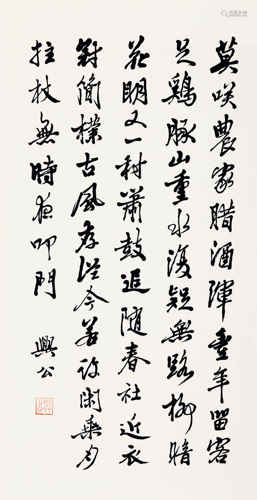 莫咲農家腊酒渾豊年留客
足鶏豚山重水複疑無路柳暗
花明又一村蕭鼓追随春社近衣
對簡樸古風存從今若許閑乗月
拄杖無時夜叩門
興公